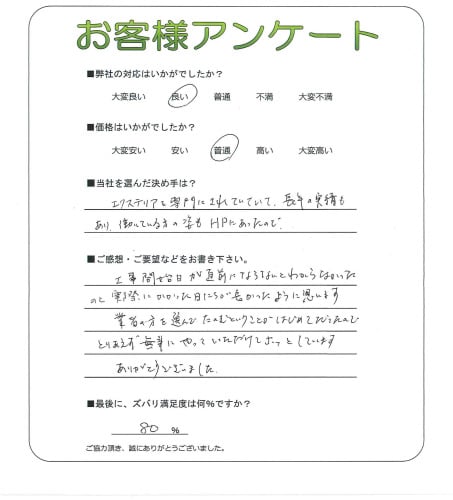 お客様アンケート
■弊社の対応はいかがでしたか？
大変良い 良い 普通 不満 大変不満
■価格はいかがでしたか？
大変安い 安い 普通 高い 大変高い
■当社を選んだ決め手は？
エクステリアを専門にされていていて、長年の実績も
あり、働いている方の姿も HPにあったので
■ご感想・ご要望などをお書き下さい。
工事開始日が直前にならないとわからなかった
のと実際にかかった日にちが長かったように思います
業者の方を選んでたのむということがはじめてだったので
とりあえず無事にやっていただけてホッとしています
ありがとうございました。
■最後に、ズバリ満足度は何％ですか？
80 ％
ご協力頂き、誠にありがとうございました。